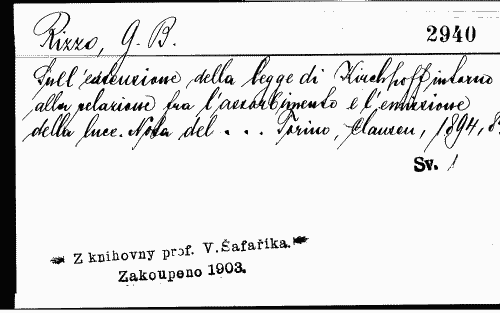 Rizzo, G. B.
2940
Sull'estensione della legge di Kirchhoff intorno
alla relazione fra l'assorbimento e l'emissione
della luce. Nota del . . . Torino, Clausen, 1894, 8.
Sv. 1
Z knihovny prof. V. Šafaříka.
Zakoupeno 1903.